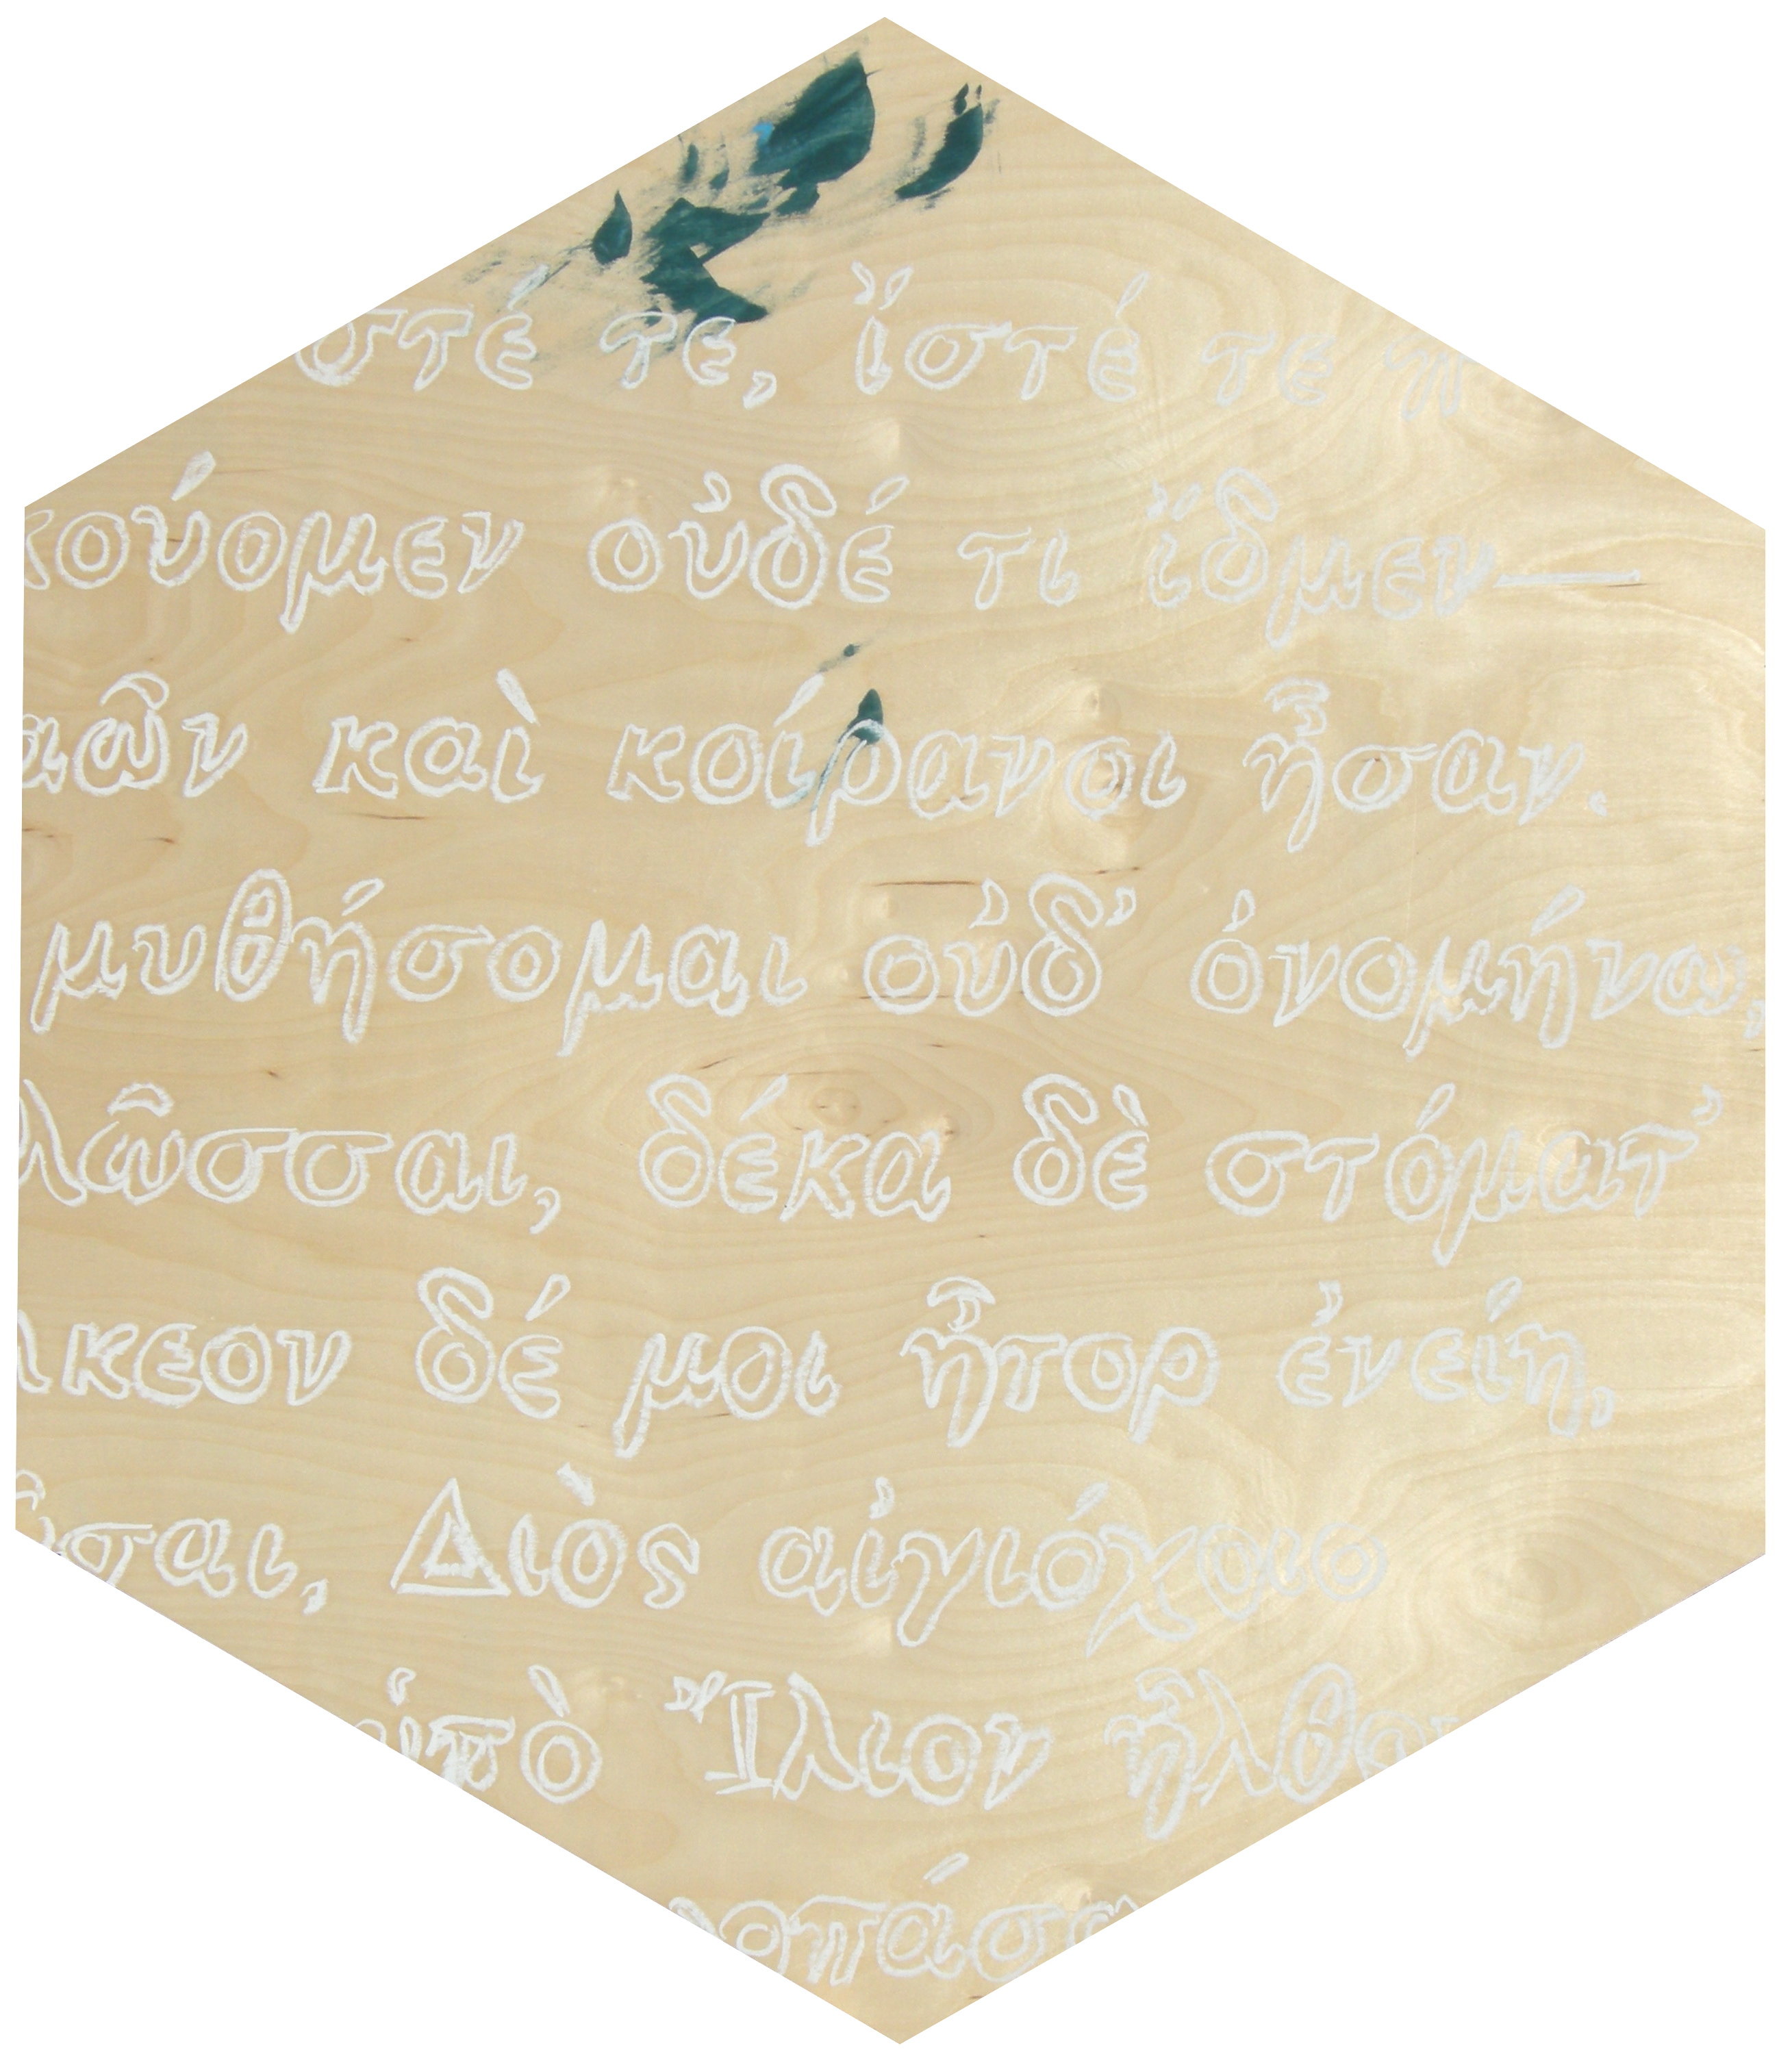 στέ τε, ἴστέ τε π
κούομεν οὐδέ τι ἴδμεν—
αῶν καὶ κοίρανοι ἦσαν.
μυθήσομαι οὐδ’ ὀνομήνω,
λῶσσαι, δέκα δὲ στόματ’
λκεον δέ μοι ἦτορ ἐνείη,
ῦσαι, Διὸς αἰγιόχοιο
ὑπὸ Ἴλιον ἦλθον
ροπάσα